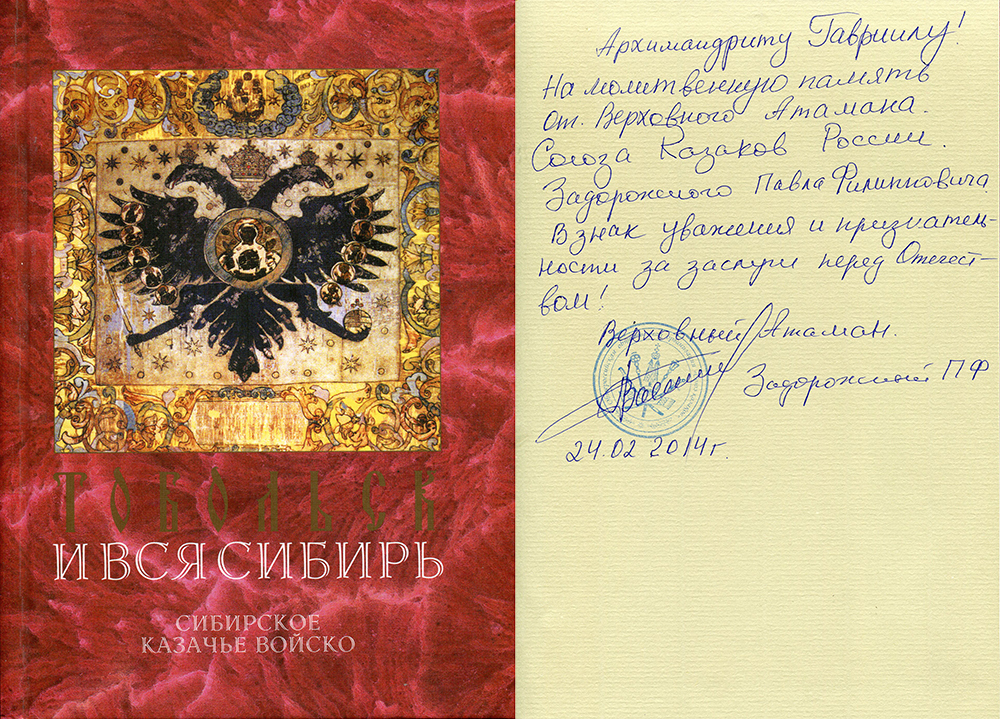 ТОБОЛЬСК
И ВСЯ СИБИРЬ
СИБИРСКОЕ
КАЗАЧЬЕ ВОЙСКО
Архимандриту Гавриилу!
На молитвенную память
от. Верховного Атамана.
Союза Казаков России.
Задорожного Павла Филипповича
В знак уважения и признатель-
ности за заслуги перед Отечест-
вом!
Верховный Атаман.
Задорожный ПФ
24.02 2014г.